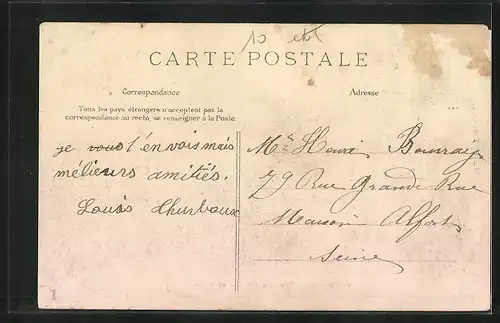 10
CARTE POSTALE
Correspondance
Tous les pays étrangers n'acceptent pas la
correspondance au recto, se renseigner à la Poste.
Adresse
je vous l'envois mais
mélieurs amitiés.
Louis
79 Rue Grande Rue
Maison Alfort
Seine